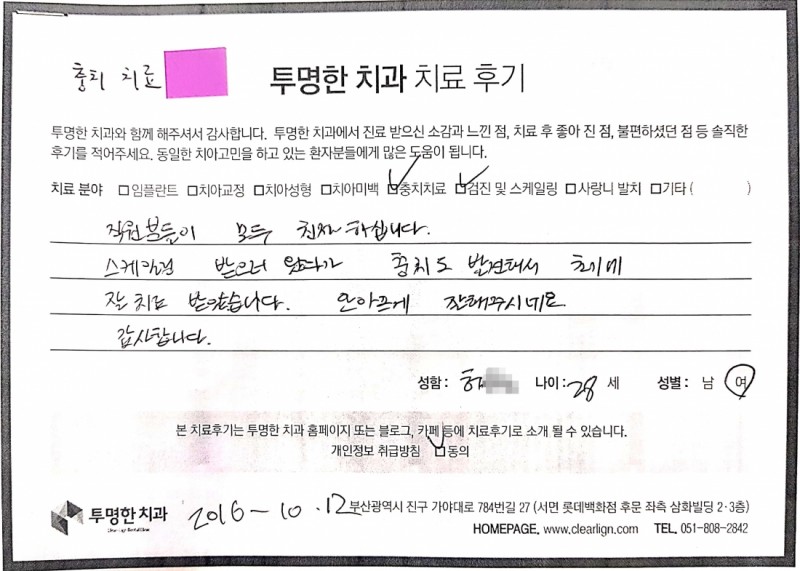 충치 치료
투명한 치과 치료 후기
투명한 치과와 함께 해주셔서 감사합니다. 투명한 치과에서 진료 받으신 소감과 느낀 점, 치료 후 좋아 진 점, 불편하셨던 점 등 솔직한
후기를 적어주세요. 동일한 치아고민을 하고 있는 환자분들에게 많은 도움이 됩니다.
치료 분야 □임플란트 □치아교정 □치아성형 □치아미백 ☑충치치료 ☑검진 및 스케일링 □사랑니 발치 □기타 ( )
직원분들이 모두 친절하십니다.
스케일링 받으러 왔다가 충치도 발견해서 초기에
잘 치료 받았습니다. 안아프게 잘해주시네요
감사합니다.
성함: 허 나이: 28 세 성별: 남 여
본 치료후기는 투명한 치과 홈페이지 또는 블로그, 카페 등에 치료후기로 소개 될 수 있습니다.
개인정보 취급방침 ☑동의
투명한치과 2016-10.12 부산광역시 진구 가야대로 784번길 27 (서면 롯데백화점 후문 좌측 삼화빌딩 2·3층)
HOMEPAGE. www.clearlign.com TEL. 051-808-2842